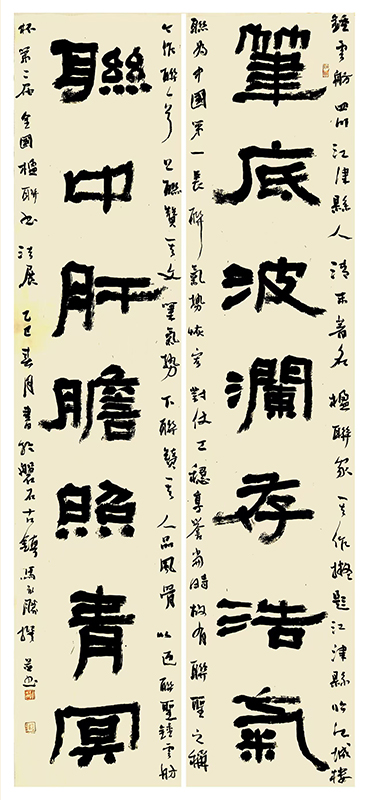 鍾雲舫四川江津縣人清末著名楹聯家其作擬題江津縣臨江城樓
筆底波瀾存浩氣
聯為中國第一長聯氣勢恢宏對仗工穩享譽當時故有聯聖之稱
作聯上聯贊其文墨氣勢下聯贊其人品風骨以迎聯聖鍾雲舫
聯中肝膽照青冥
杯第二屆全國楹聯書法展乙巳春月書於磐石古鎮馬撰并書